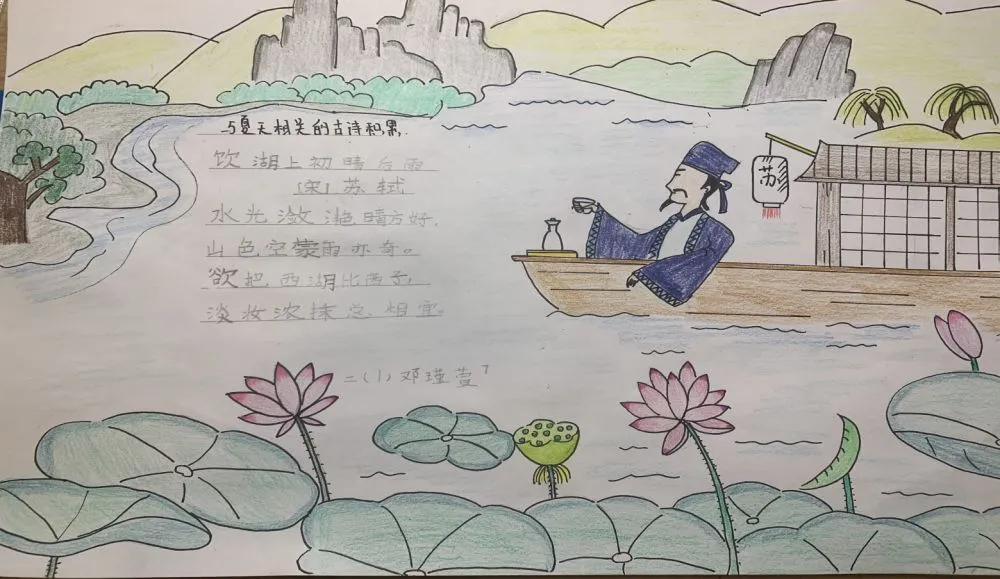 与夏天相关的古诗积累
饮湖上初晴后雨
[宋]苏轼
水光潋滟晴方好,
山色空蒙雨亦奇。
欲把西湖比西子,
淡妆浓抹总相宜。
苏
二(1)邓瑾萱7